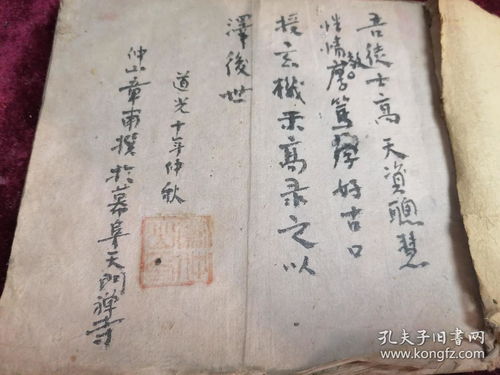 吾徒士高天資聰慧
性情敦厚篤學好古口
授玄機示高录之以
澤後世
道光十年仲秋
仲山章甫撰於幕阜天門禅寺
孔夫子旧书网
www.kongfz.com